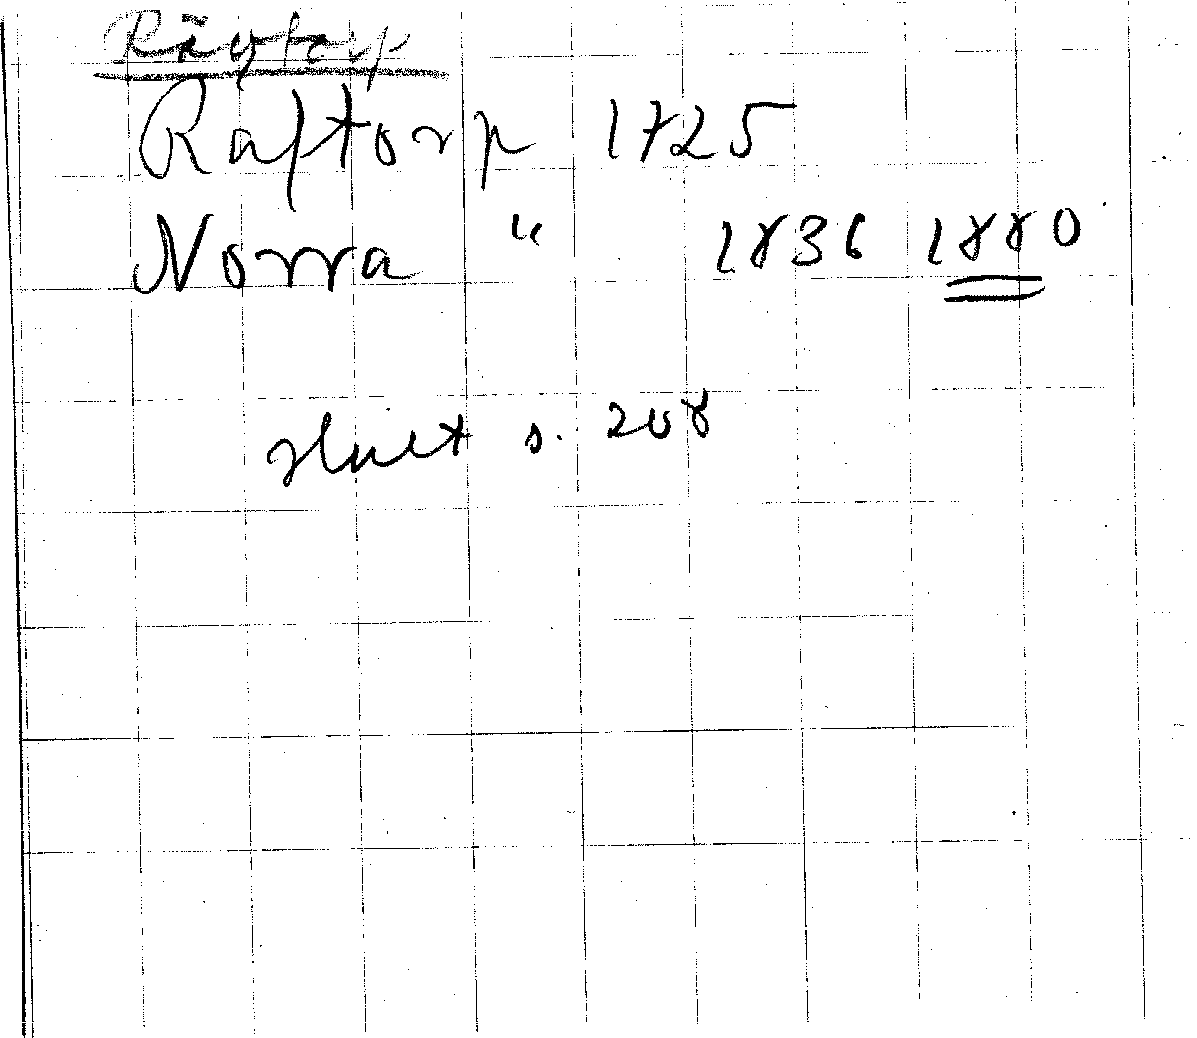 Rävtorp
Raftorp 1725
Norra " 1836 1880
s. 208